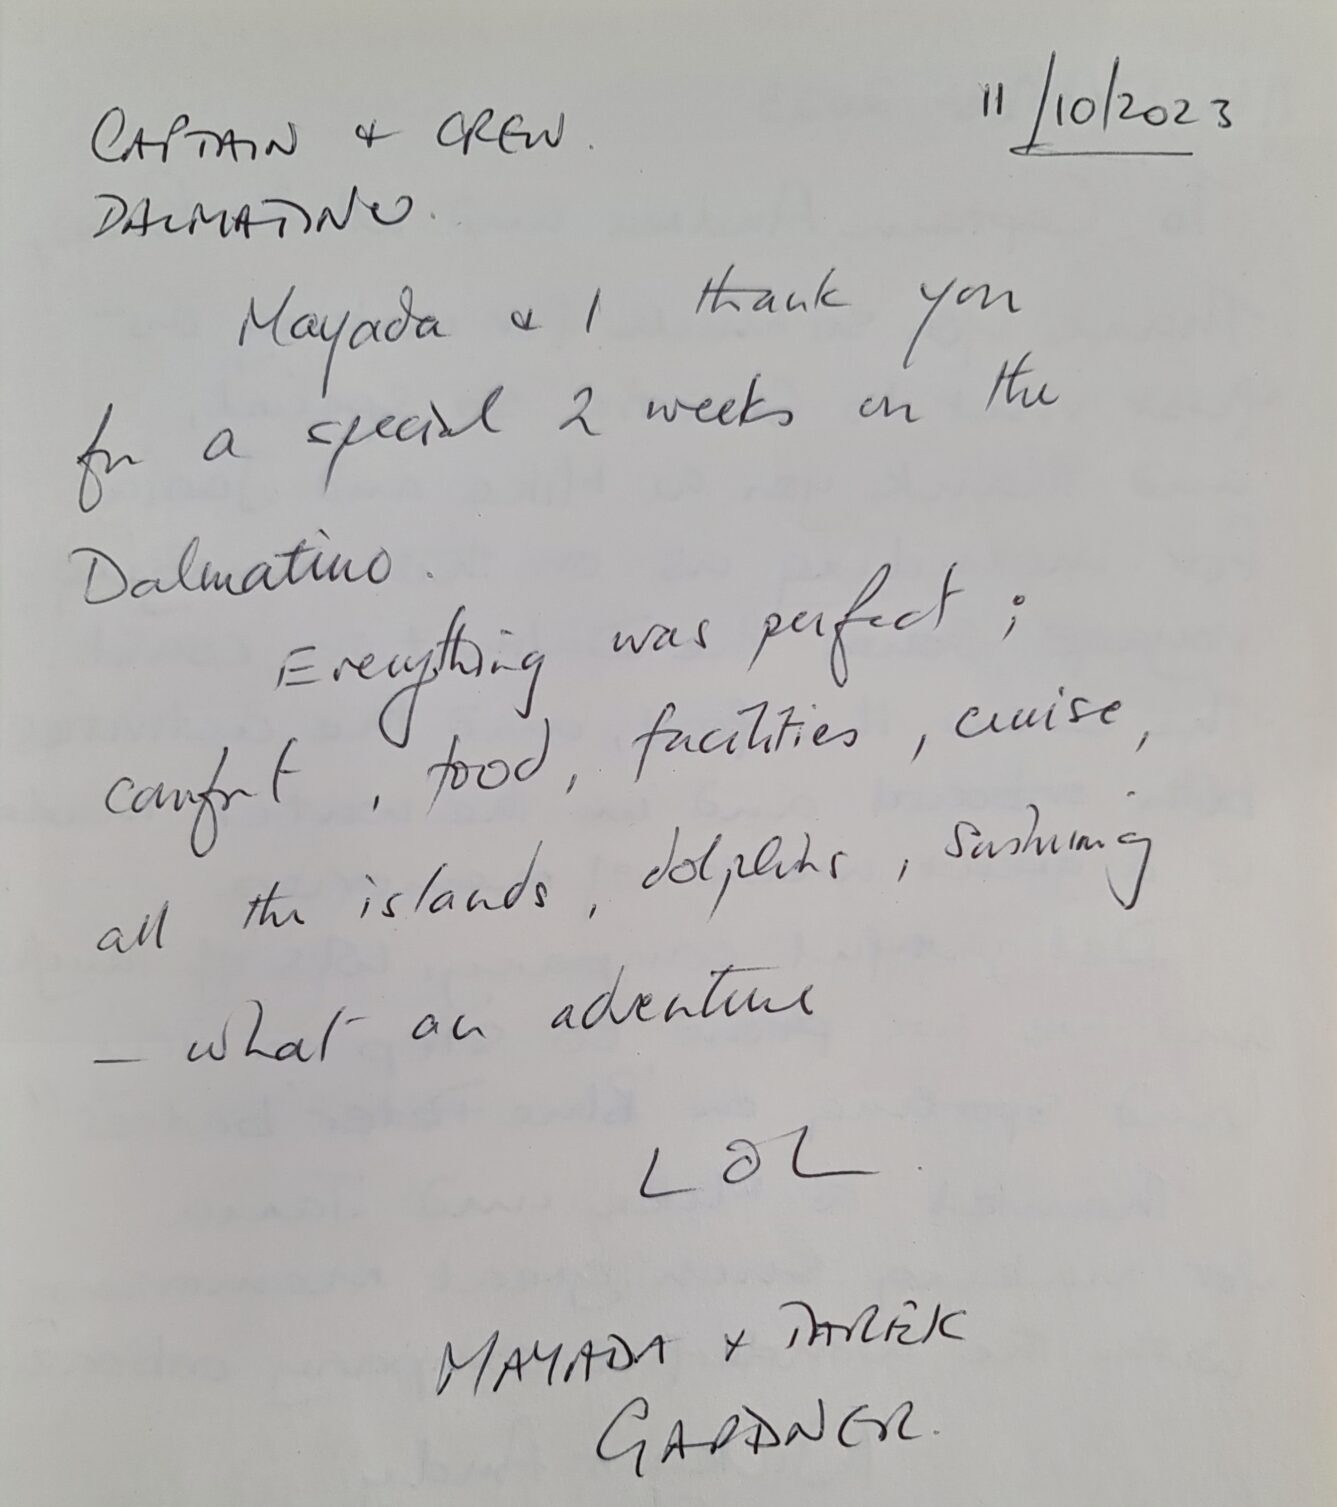 11/10/2023
CAPTAIN & CREW.
DALMATINO.
Mayada & I thank you
for a special 2 weeks on the
Dalmatino.
Everything was perfect ;
comfort, food, facilities, cruise,
all the islands, dolphins,
— what an adventure
LOL.
MAYADA & TAREK
GARDNER.